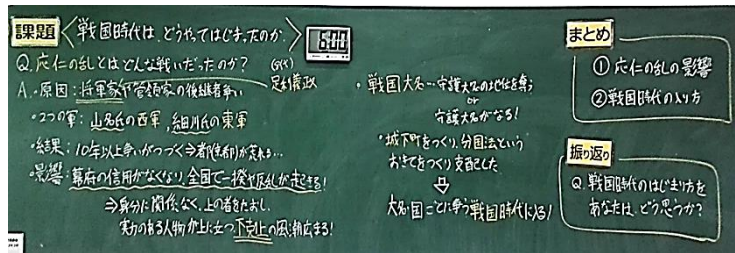 課題
戦国時代は、どうやってはじまったのか
6:00
Q.応仁の乱とはどんな戦いだったのか?
足利義政
A.・原因:将軍家や管領家の後継者争い
・2つの軍:山名氏の西軍,細川氏の東軍
・結果:10年以上争いがつづく⇒都(京都)が荒れる…
・影響:幕府の信用がなくなり、全国で一揆や反乱が起きる!
⇒身分に関係なく、上の者をたおし、
実力のある人物が上に立つ下克上の風潮広まる!
・戦国大名…守護大名の地位を奪う
or
守護大名がなる!
・城下町をつくり、分国法という
おきてをつくり支配した
⇩
大名国ごとに争う戦国時代に入る!
まとめ
①応仁の乱の影響
②戦国時代の入り方
振り返り
Q.戦国時代のはじまり方を
あなたは、どう思うか?